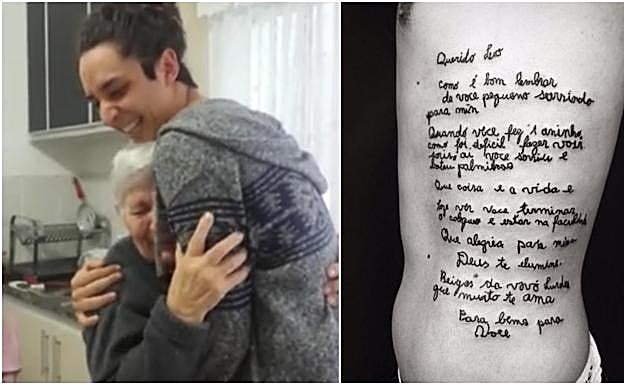 Querido Leo
como é bom lembrar
de você pequeno sorrindo
para mim
Quando você fez 1 aninho
como foi dificil fazer você
ai você sorriu e
bateu palminhas
Que coisa e a vida e
hoje ver voce terminar
o colegio e estar na faculdade
Que alegria para mim
Deus te ilumine.
Beijos da vovó Lurdes
que muito te ama
Para bens para
Voce